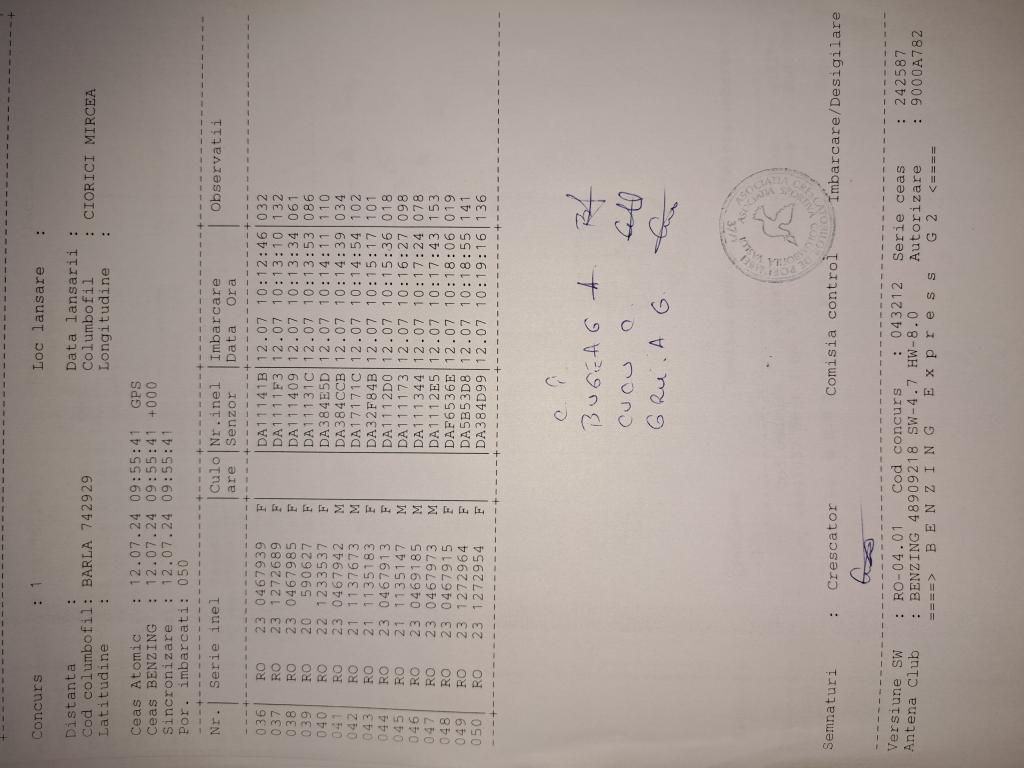 Concurs : 1 Loc lansare :
Distanta : Data lansarii :
Cod columbofil: BARLA 742929 Columbofil : CIORICI MIRCEA
Latitudine : Longitudine :
Ceas Atomic : 12.07.24 09:55:41 GPS
Ceas BENZING : 12.07.24 09:55:41 +000
Sincronizare : 12.07.24 09:55:41
Por. imbarcati: 050
Nr. | Serie inel |Culo |Nr.inel |Imbarcare | Observatii
|are |Senzor |Data Ora
036 RO 23 0467939 F DA11141B 12.07 10:12:46 032
037 RO 23 1272689 F DA1111F3 12.07 10:13:10 132
038 RO 23 0467985 F DA111409 12.07 10:13:34 061
039 RO 20 590627 F DA11131C 12.07 10:13:53 086
040 RO 22 1233537 F DA384E5D 12.07 10:14:11 110
041 RO 23 0467942 M DA384CCB 12.07 10:14:39 034
042 RO 21 1137673 M DA17171C 12.07 10:14:54 102
043 RO 21 1135183 F DA32F84B 12.07 10:15:17 101
044 RO 23 0467913 F DA1112D0 12.07 10:15:36 018
045 RO 21 1135147 M DA111173 12.07 10:16:27 098
046 RO 23 0469185 M DA111344 12.07 10:17:24 078
047 RO 23 0467973 M DA1112E5 12.07 10:17:43 153
048 RO 23 0467915 F DAF6536E 12.07 10:18:06 019
049 RO 23 1272964 F DA5B53D8 12.07 10:18:55 141
050 RO 23 1272954 F DA384D99 12.07 10:19:16 136
CUCU O
Semnaturi : Crescator Comisia control Imbarcare/Desigilare
Versiune SW : RO-04.01 Cod concurs : 043212 Serie ceas : 242587
Antena Club : BENZING 48909218 SW-4.7 HW-8.0 Autorizare : 9000A782
====> B E N Z I N G E x p r e s s G 2 <====